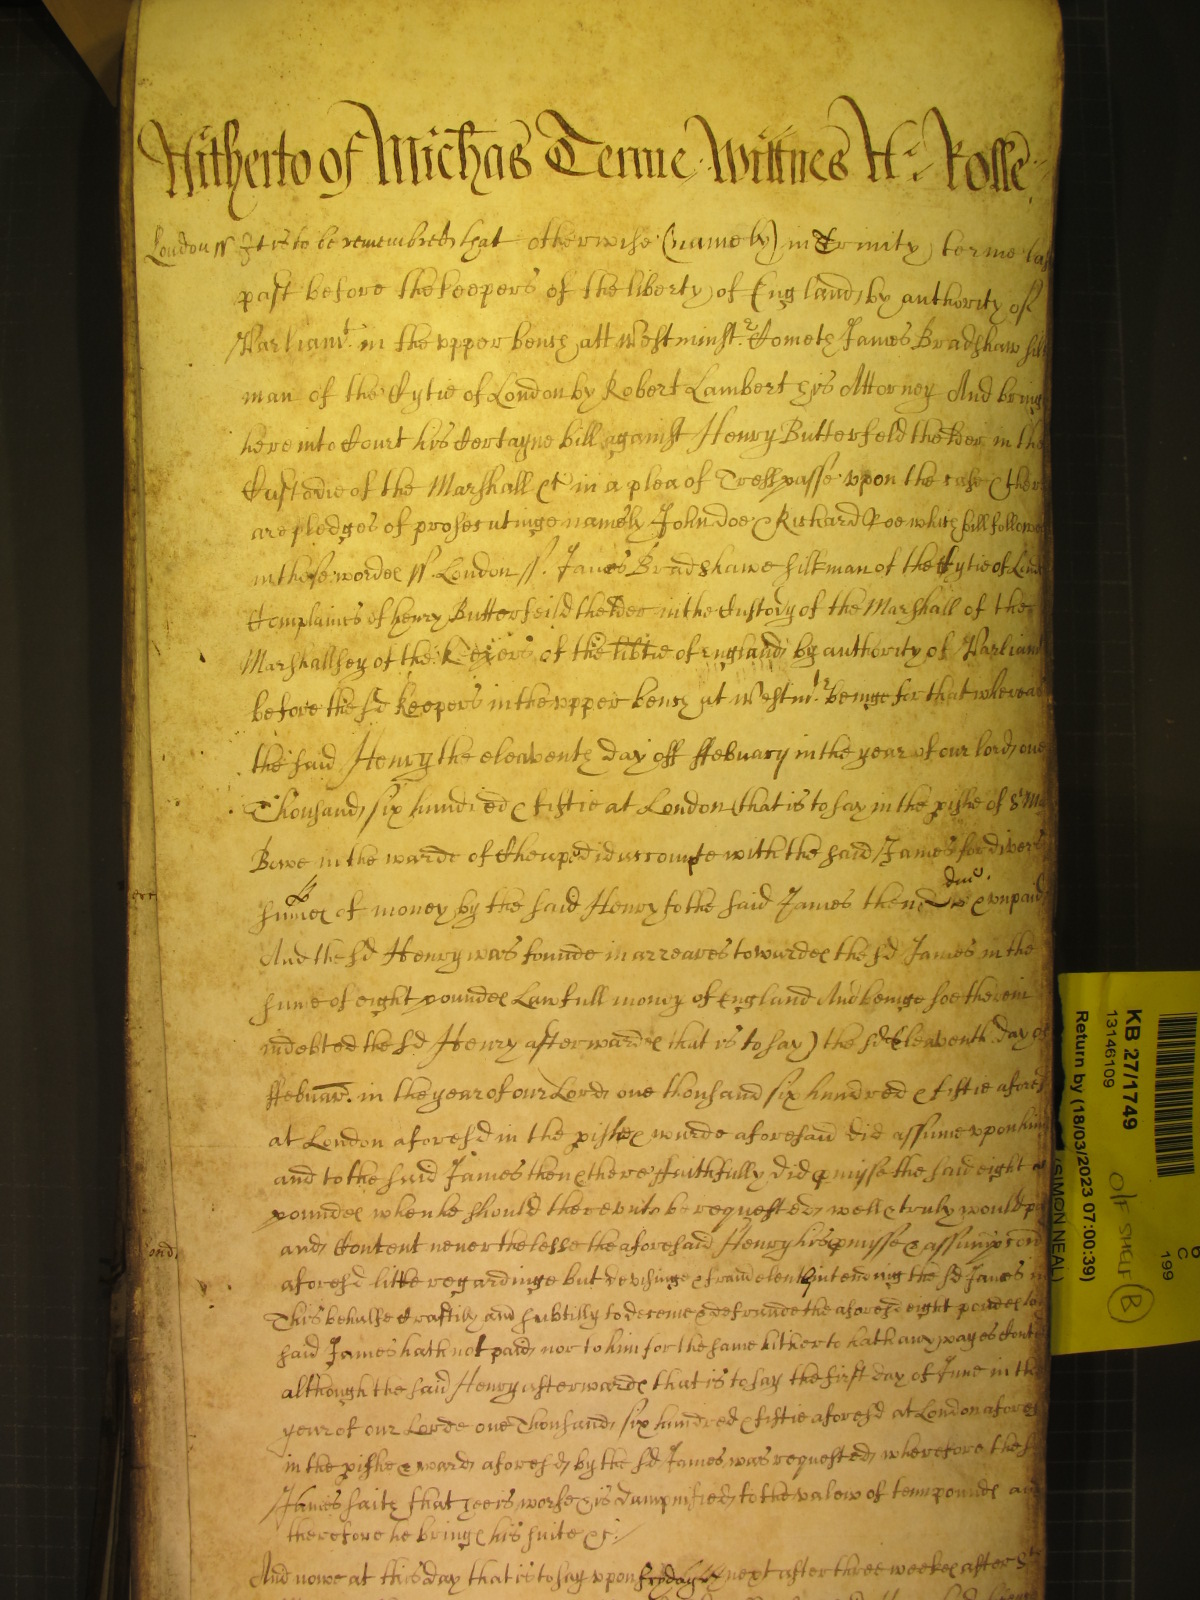 Hitherto of Michas Terme Wittnes H: Rolle
London ss It is to be remembred that otherwise (namely) in Trinity terme las
past before the keepers of the liberty of England by authority of
Parliamt. in the upper bench att Westminstr. Cometh James Bradshaw silk
man of the Cytie of London by Robert Lambert his Attorney And bring
here into Court his Certayne bill against Henry Butterfeld thelder in the
Custodie of the Marshall &c in a plea of Trespasse upon the case & ther
are pledges of prosecutinge namely John doe & Richard Roe which bill followe
in these wordes ss London ss. James Bradshawe silkman of the Cytie of Lon
Complaines of henry Butterfeild thelder in the Custody of the Marshall of the
Marshallsey of the Keepers of the libtie of England by authority of Parliam
before the sd keepers in the upper bench at Westmr. beinge for that whereas
the said Henry the eleaventh day off ffebuary in the year of our lord one
Thousand six hundred & fiftie at London that is to say in the pishe of St Ma
Bowe in the warde of Cheape did accompte with the said James for divers
summes of money by the said Henry to the said James then due & unpaid
And the sd Henry was founde in arreares towardes the sd James in the
sume of eight poundes Lawfull mony of England And beinge soe therein
indebted the sd Henry afterwardes that is to say) the sd Eleaventh day of
ffebuar. in the year of our Lord one thousand six hundred & fiftie afores
at London aforesd in the pishe & warde aforesaid did assume upon him
and to the said James then & there ffaithfully did pmysse the said eight
poundes when he should thereunto be requested well & truly would p
and Content neverthelesse the aforesaid Henry his pmysse & assumpcon
aforesd litle regardinge but devisinge & fraudelently intending the sd James in
This behalfe Craftily and subtilly to deceive & defraude the aforesd eight poundes to
said James hath not paid nor to him for the same hitherto hath any wayes Cont
although the said Henry afterwardes that is to say the first day of June in the
year of our Lorde one Thousand six hundred & fiftie aforesd at London afores
in the pishe & ward aforesd by the sd James was requested wherefore the s
James saith that hee is worse & is dampnified to the valew of tenn poundes and
therefore he bringes his suite &c:
And nowe at this day that is to say upon fryday next after three weekes after St
ond
KB 27/1749
13146109
Return by (18/03/2023 07:00:39)
(SIMON NEAL)
O/F SHELF B
C
199